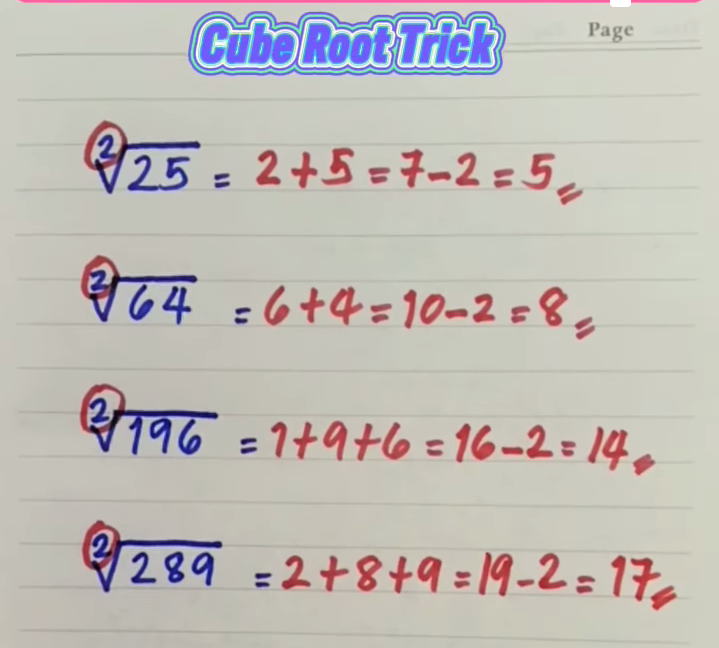 Cube Root Trick
Page
²√25 = 2+5=7-2=5
²√64 = 6+4=10-2=8
²√196 = 1+9+6=16-2=14
²√289 = 2+8+9=19-2=17